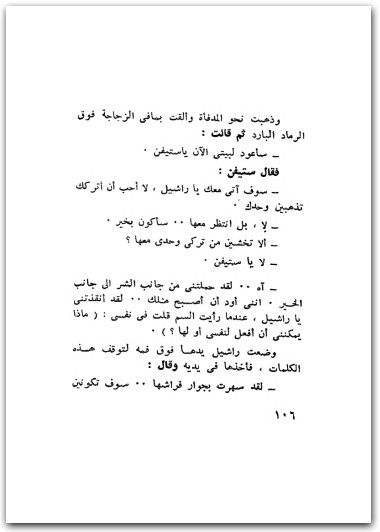 وذهبت نحو المدفأة وألقت بمافى الزجاجة فوق
الرماد البارد ثم قالت :
ـ سأعود لبيتى الآن ياستيفن .
فقال ستيفن :
ـ سوف آتى معك يا راشيل ، لا أحب أن أتركك
تذهبين وحدك .
ـ لا ، بل انتظر معها .. سأكون بخير .
ـ ألا تخشين من تركى وحدى معها ؟
ـ لا يا ستيفن .
ـ آه .. لقد حملتنى من جانب الشر الى جانب
الخير . اننى أود أن أصبح مثلك .. لقد أنقذتنى
يا راشيل ، عندما رأيت السم قلت فى نفسى : ( ماذا
يمكننى أن أفعل لنفسى أو لها ؟ ) .
وضعت راشيل يدهـا فوق فمه لتوقف هـذه
الكلمات ، فأخذها فى يديه وقال :
ـ لقد سهرت بجوار فراشها .. سوف تكونين
١٠٦